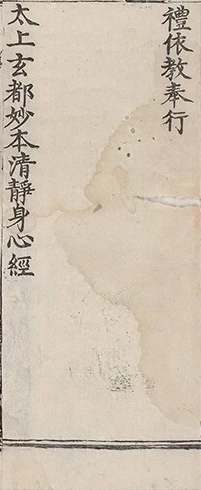 禮依教奉行
太上玄都妙本清靜身心經